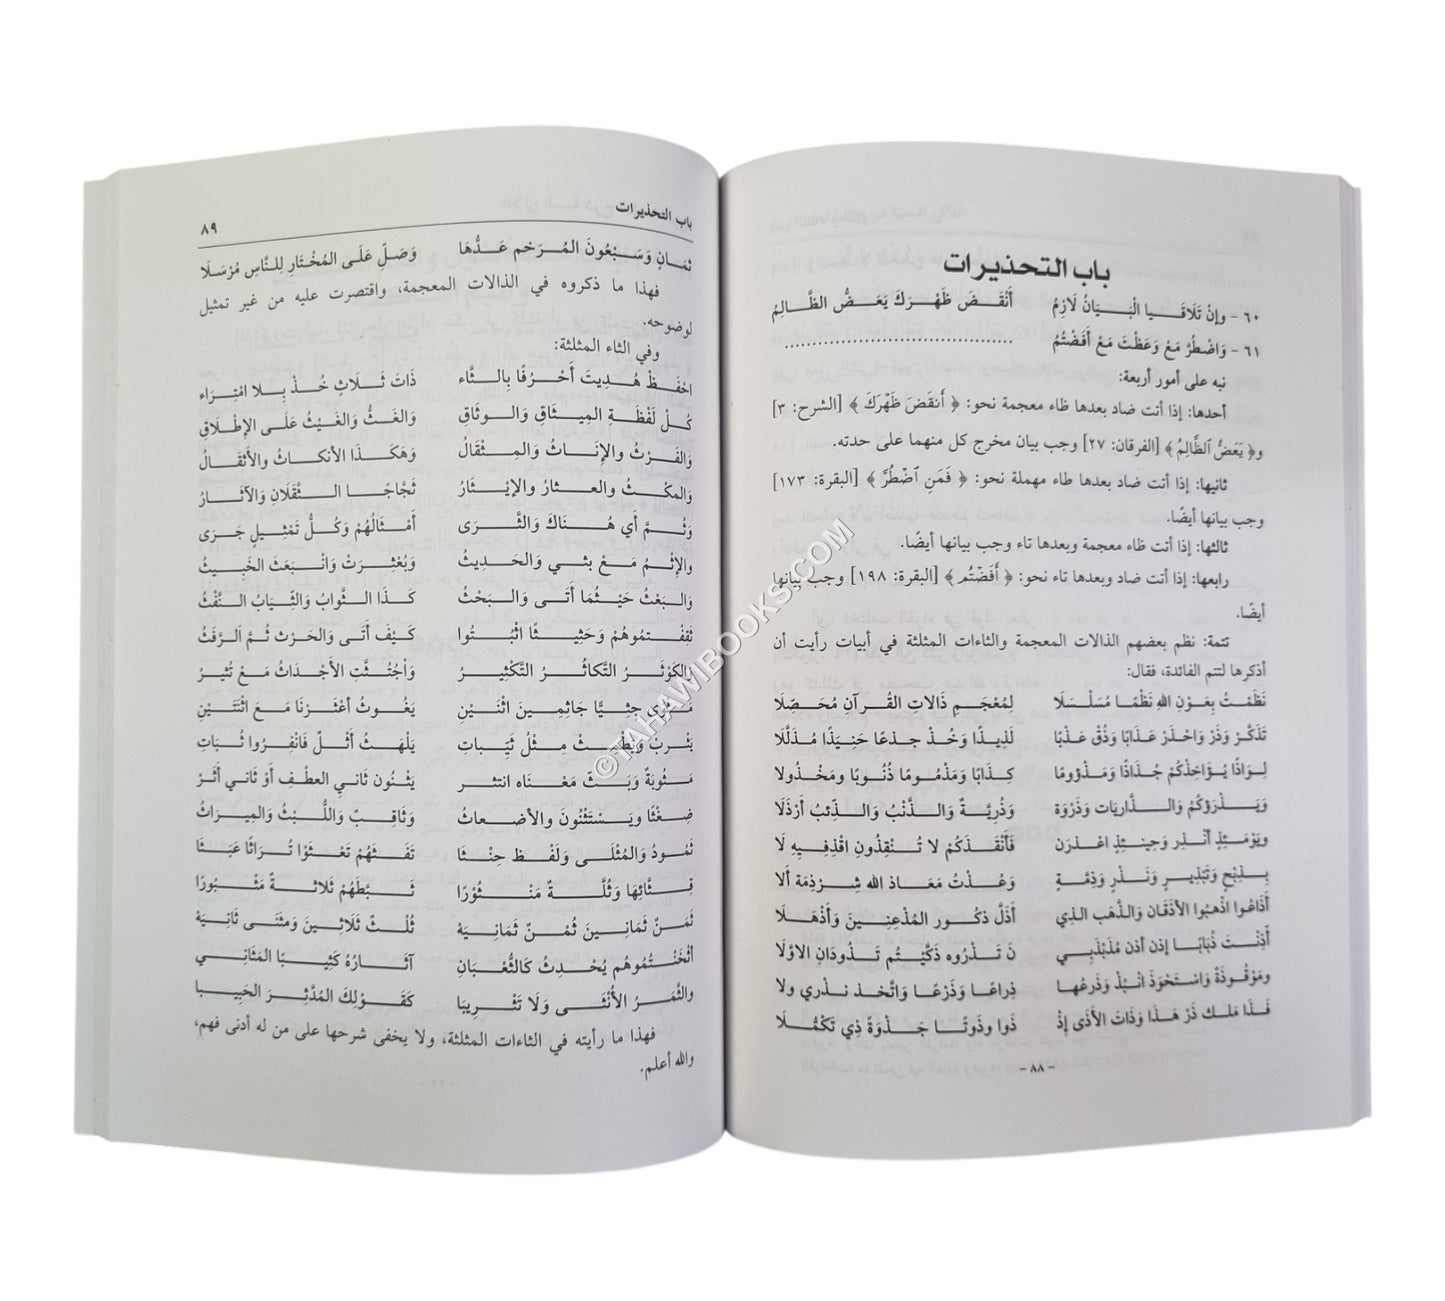 باب التحذيرات
٦٠ - وإنْ تَلَاقَيا الْبَيَانُ لَازِمُ أَنْقَضَ ظَهْرَكَ يَعَضُّ الظَّالِمُ
٦١ - وَاضْطُرَّ مَعْ وَعَظْتَ مَعْ أَفَضْتُمُ ......................................
نبه على أمور أربعة:
أحدها: إذا أتت ضاد بعدها ظاء معجمة نحو: ﴿ أَنقَضَ ظَهْرَكَ ﴾ [الشرح: ٣]
و﴿ يَعَضُّ ٱلظَّالِمُ ﴾ [الفرقان: ٢٧] وجب بيان مخرج كل منهما على حدته.
ثانيها: إذا أتت ضاد بعدها طاء مهملة نحو: ﴿ فَمَنِ ٱضْطُرَّ ﴾ [البقرة: ١٧٣]
وجب بيانها أيضًا.
ثالثها: إذا أتت ظاء معجمة وبعدها تاء وجب بيانها أيضًا.
رابعها: إذا أتت ضاد وبعدها تاء نحو: ﴿ أَفَضْتُم ﴾ [البقرة: ١٩٨] وجب بيانها
أيضًا.
تتمة: نظم بعضهم الذالات المعجمة والثاءات المثلثة في أبيات رأيت أن
أذكرها لتتم الفائدة، فقال:
نَظَمْتُ بِعَوْنِ اللهِ نَظْمًا مُسَلْسَلَا لِمُعْجَمِ ذَالاتِ القُرآنِ مُحَصِّلَا
تَذَكَّرْ وَذَرْ وَاحْذَرْ عَذَابًا وَذُقْ عَذْبًا لَذِيذًا وَخُذْ جِذعًا حَنِيذًا مُذَلَّلَا
لِوَاذًا يُؤَاخِذْكُمْ جُذَاذًا وَمَذْؤومًا كِذَابًا وَمَذْمُومًا ذُنُوبًا ومَخْذُولا
وَيَذْرَؤكُمْ وَالذَّارِيَات وَذَرْوَة وَذُرِيَّةٌ وَالذَّنْبُ وَالذِّئبُ أَرْذَلَا
ويَوْمَئِذٍ أَنْذِر وَحِينئِذٍ اعْذرَن فَأَنْقَذَكُمْ لا تُنْقِذُون اقْذِفِيهِ لَا
بِذِبْحٍ وَتَبْذِيرٍ وَنَذْرٍ وَذِمَّةٍ وَعُذْتُ مَعَاذ الله شِرْذِمَة أَلا
أَذَاعُوا اذْهَبُوا الأذقَان وَالذَّهَب الذِي أَذَلَّ ذكُور المُذْعِنِينَ وَأَذْهَلَا
أَذِنْتَ ذُبَابًا إذن أذن مُذَبْذَبِي نَ تَذْرُوه ذَكَّيْتُم تَذُودَانِ الاوْلَا
وَمَوْقُوذَةٌ وَاسْتَحْوَذَ انْبُذْ وَذَرعُها ذِراعًا وَذَرْعًا وَاتَّخذ نذري ولا
فَذَا مَلك ذَرْ هَذَا وَذَاتَ الأَذَى إذْ ذَوا وذَوتَا جَذْوَةً ذِي تَكَمُّلَا
- ٨٨ -
باب التحذيرات ٨٩
ثمَانٍ وَسَبْعُونَ المُرَخم عَدُّهَا وَصَلِّ عَلَى المُخْتَارِ لِلنَّاسِ مُرْسَلَا
فهذا ما ذكروه في الذالات المعجمة، واقتصرت عليه من غير تمثيل
لوضوحه.
وفي الثاء المثلثة:
احْفَظْ هُدِيتَ أَحْرُفًا بِالثَّاء ذَات ثَلَاثٍ خُذْ بِلا امْتِرَاء
كُلُ لَفْظَةِ المِيثَاقِ وَالوثَاقِ وَالغَثُّ وَالغَيْثُ عَلَى الإِطْلَاقِ
وَالفَرْثُ والإنَاثُ وَالمثْقَالُ وَهَكَذَا الأنكاثُ والأَثْقَالُ
وَالمكْثُ والعثارُ والإيثَارُ ثَجَّاجًا الثَّقَلَان وَالآثَارُ
وَثُمَّ أي هُنَاكَ وَالثَّرَى أَمْثَالُهُمْ وَكُلُّ تَمْثِيلٍ جَرَى
والإِثْمُ مَعْ بثي وَالحَدِيثُ وَبُعْثِرَتْ وَانْبَعَثَ الخَبِيثُ
وَالبَعْثُ حَيْثُمَا أَتَى وَالبَحْثُ كَذَا الثَّوابُ والثِّيَابُ النَّفْثُ
ثَقِفْتمُوهُمْ وَحَثِيثًا اثْبتُوا كَيْفَ أَتَى وَالحَرْث ثُمَّ الرَّفَثُ
والكَوْثَرُ التَّكَاثُرُ التَّكْثِيرُ وَاجْتُثَّتِ الأَجْدَاثُ مَعْ تُثِيرُ
مَثْوَى جِثِيًّا جَاثِمِينَ اثْنَيْنِ يَغُوثُ أعْثَرْنَا مَعَ اثْنَتَيْنِ
يَثْرِبْ وَيَطْمِثْ مِثْلُ ثَيِّبَاتِ يَلْهَثُ أَثْلٌ فَانْفِرُوا ثُبَاتِ
مَثُوبَةٌ وَبَثَّ مَعْنَاه انتثر يَثْنُون ثَاني العطْفِ أَوْ ثَاني أَثَرْ
ضِغْثًا ويَسْتَثْنُون والأضغاثُ وَثَاقِبٌ وَاللُّبْثُ وَالمِيرَاثُ
ثَمُودُ وَالمُثْلَى وَلَفْظ حِنْثَا تَفَثَهُمْ تَعْثَوْا تُرَاثًا عَبَثَا
قِثَّائِهَا وَثُلَّةٌ مَنْثُوْرًا ثَبَّطَهُمْ ثَلاثةٌ مَثْبُورًا
ثَمَنٌ ثَمَانِينَ ثُمُنٌ ثَمَانِيَة ثُلْثٌ ثَلَاثِينَ وَمثنَى ثَانِيَة
أثْخَنْتُمُوهُم يُحْدِثُ كَالثُّعْبَانِ آثَارُهُ كَثِيبًا المَثَانِي
والثَّمَرُ الأُنْثَى وَلَا تَثْرِيبَا كَقَوْلِكَ المُدَّثِرَ الحَبِيبا
فهذا ما رأيته في الثاءات المثلثة، ولا يخفى شرحها على من له أدنى فهم،
والله أعلم.
©TAHAWIBOOKS.COM